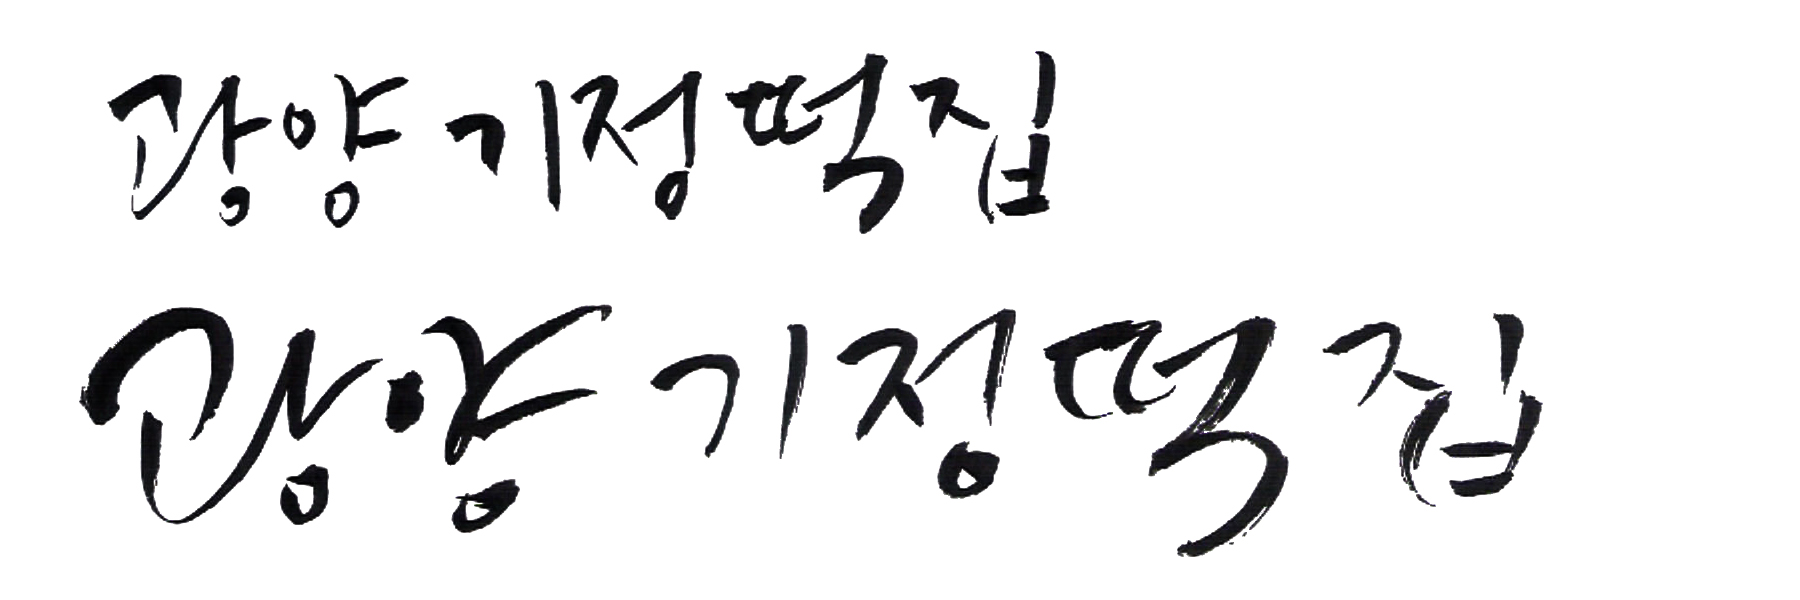 광양 기정떡집
광양 기정떡집